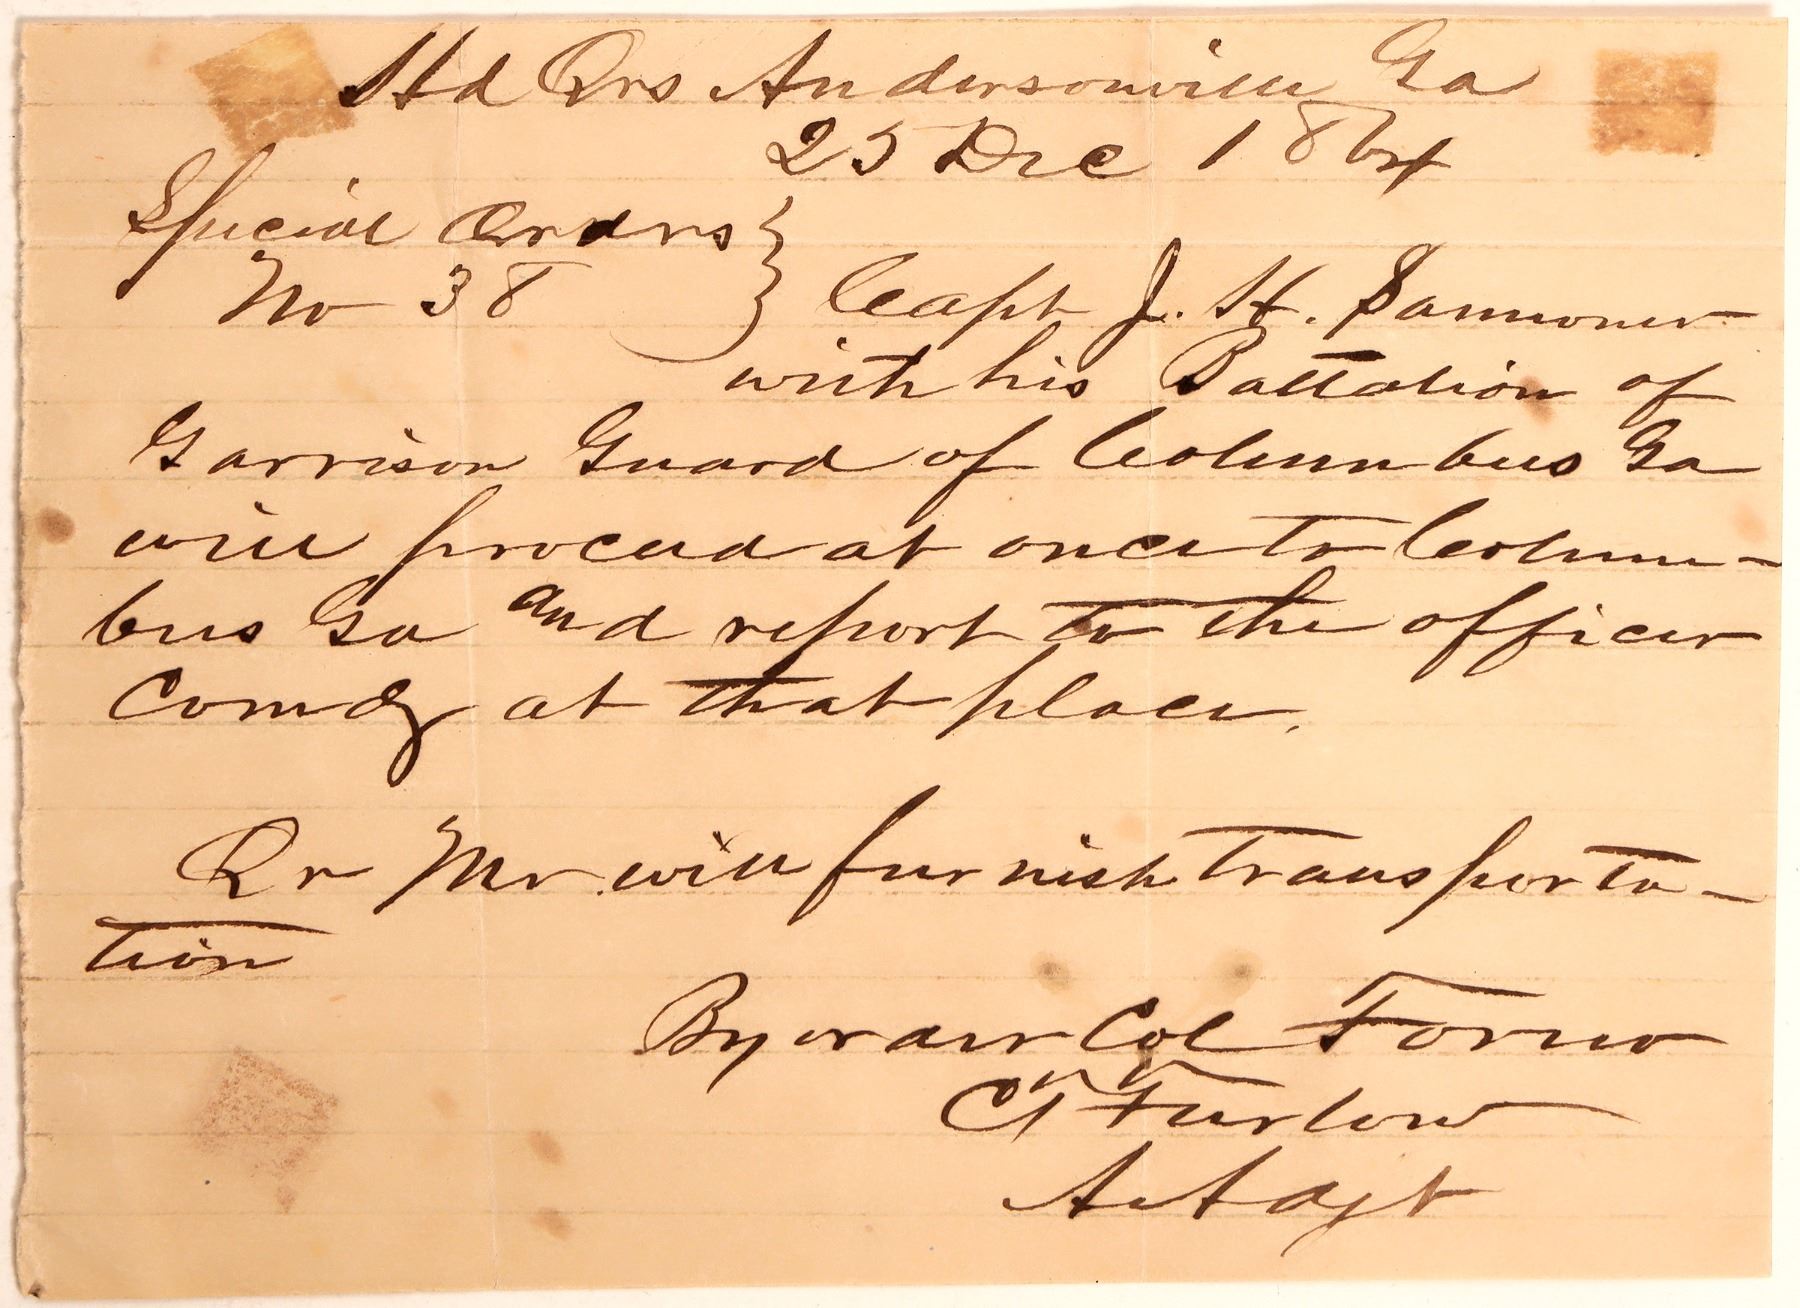 Hd Qrs Andersonville Ga
25 Dec 1864
Special Orders
No 38 } Capt J. H. Sammoner
with his Battalion of
Garrison Guard of Columbus Ga
will proceed at once to Colum-
bus Ga and report to the officer
Comdg at that place.
Qr Mr will furnish transporta-
tion
By order Col Forno
CT Furlow
A Adjt